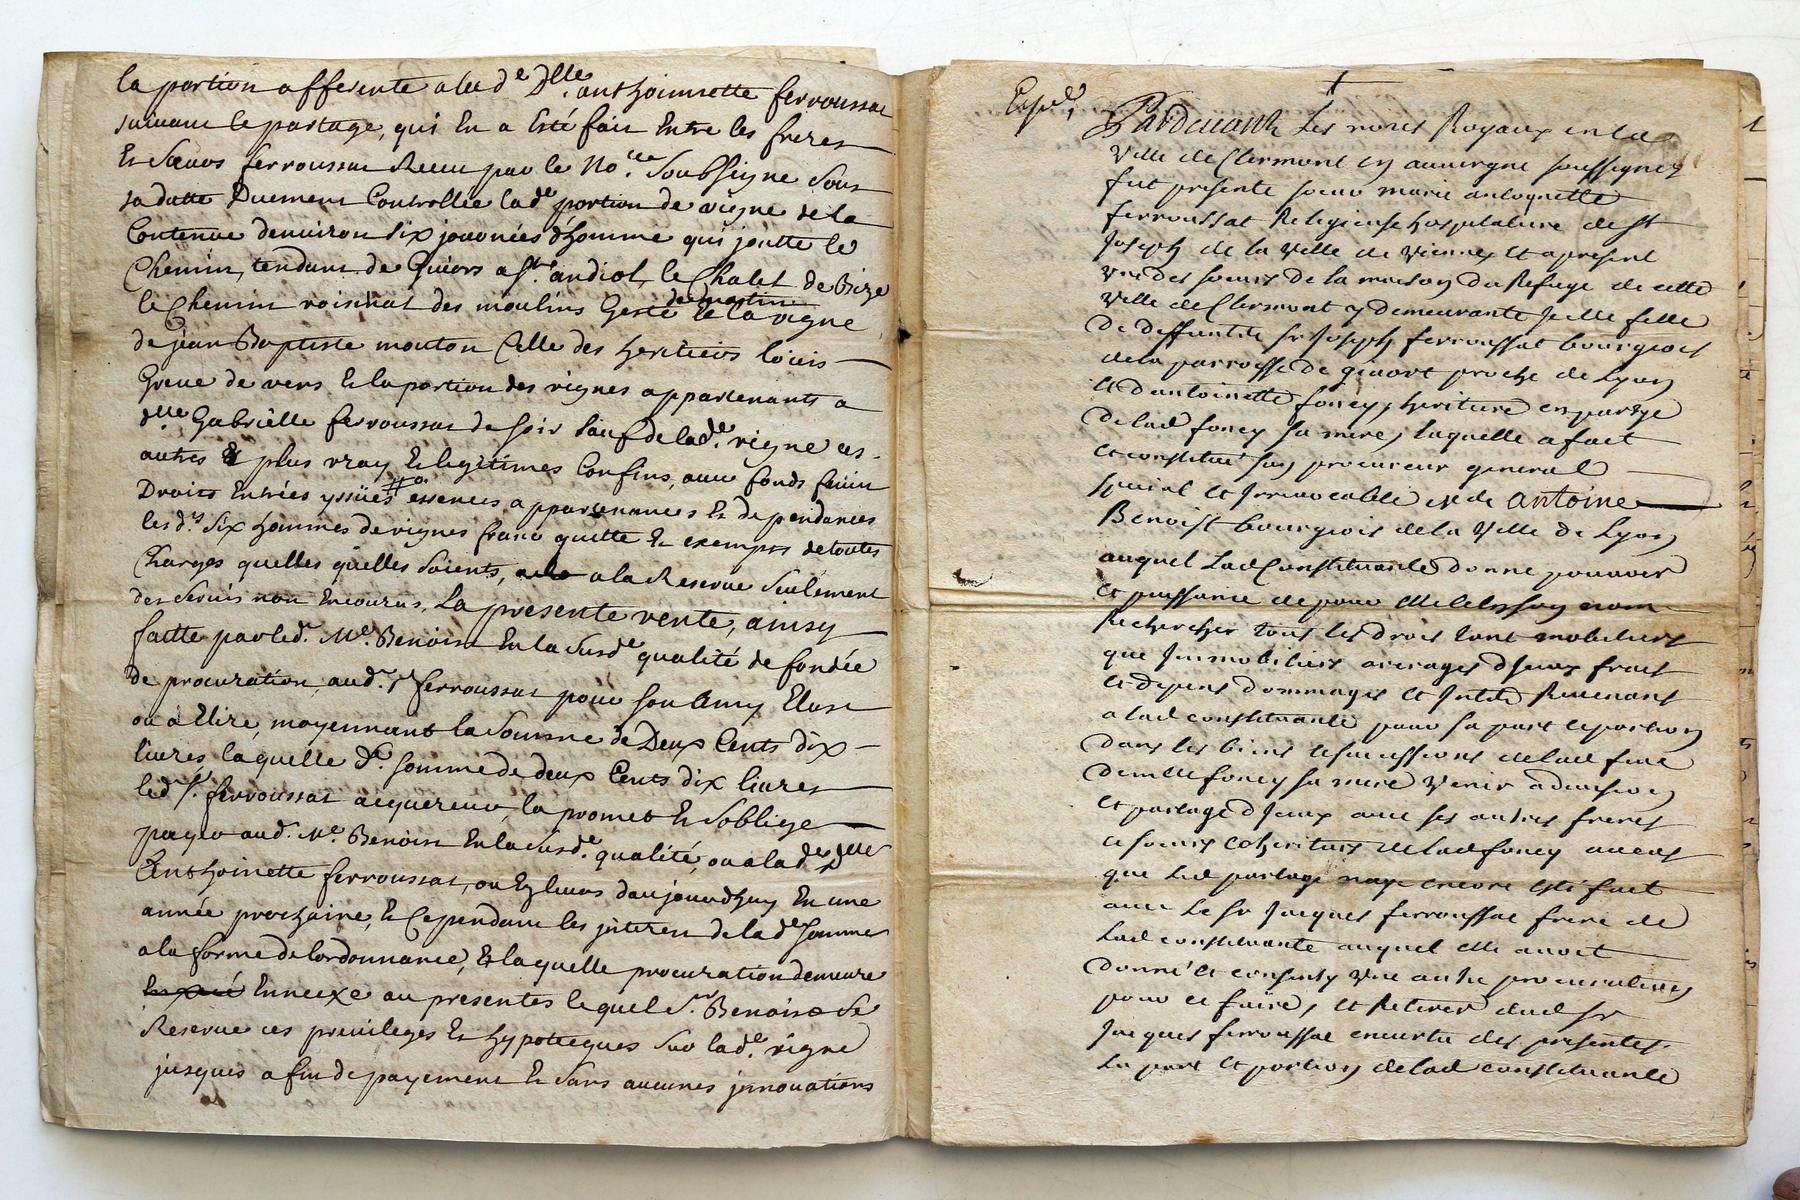 la portion afferente a lad^e D^lle. anthoinnette ferroussat
suivant le partage, qui En a Esté fait Entre les freres
Et Sœurs ferroussat Receu par le No^re. Soubsigne Sous
sa datte Duement Controllée lad^e portion de vigne de la
Contenue denviron Six journées d'homme qui joutte le
Chemin, tendant de a S^t. andiol, le Chalet de Bize
le Chemin voisinat des moulins de la vigne
de martin
de jean Baptiste mouton Celle des heritiers louis
Greue de vers Et la portion des vignes appartenants a
d^lle Gabrielle ferroussat de soir Sauf de lad^e. vigne ces
autres Et plus vray Et legitimes Confins, avec fonds
Droits Entrées yssües essences appartenances Et dependances
les d^s Six hommes de vignes franc quitte Et exempts de toutes
Charges quelles quelles Soients, a la Reserve Seulement
des Servis non Encourus, La presente vente, ainsy
faitte par led^t. M^e. Benoist En la Susd^e qualité de fondée
de procuration, aud^t. S^r ferroussat pour son Amy Elust
ou a Elire, moyennant la Somme de Deux Cents dix
livres, laquelle d^e. somme de deux Cents dix livres
led^t S^r. ferroussat acquereur, la promet Et Soblige
payer aud^t. M^e. Benoist En la Susd^e. qualité, ou a lad^e D^lle
Anthoinette ferroussat, ou Es leurs daujourdhuy En une
année prochaine, Et Cependant les jnterest de lad^e somme
a la forme de lordonnance, Et laquelle procuration demeure
Enneixe au presentes lequel S^r. Benoist Se
Reserve ces privileges Et hypotteques Sur lad^e. vigne
jusques a fin de payement Et Sans aucunes jnnovations
Pardevant Les no^res Royaux en la
Ville de Clermont en auvergne soussignez
fut presente sœur marie antoynette
ferroussat Religieuse hospitaliere de St
Joseph de la Ville de Vienne et apresent
Vne des sœurs de la maison du Refuge de cette
Ville de Clermont y demeurante fille
de deffuntte sr Joseph ferroussat bourgeois
de la parroisse de proche de Lyon
et d'antoinette foney, heritiere en partye
de lad foney sa mere, laquelle a fait
et constitué son procureur general
special et Irrevocable Antoine
Benoist bourgeois de la Ville de Lyon
auquel Lad Constituante donne pouvoir
et puissance de pour elle et en son nom
Rechercher tous les droits tant mobiliers
que Immobiliers arrerages d'jceux frais
et depens dommages et Revenant
a lad constituante pour sa part et portion
dans les biens et successions de lad feue
foney sa mere Venir a division
et partage d'Iceux avec ses autres freres
et sœurs coheritiers de lad foney au cas
que Led partage naye encore esté fait
avec Le Sr Jacques ferroussat frere de
Lad constituante auquel elle avoit
donné et consenty Vne autre procuration
pour ce faire, et Retirer dud Sr
Jacques ferroussat en vertu des presentes
La part et portion de lad constituante